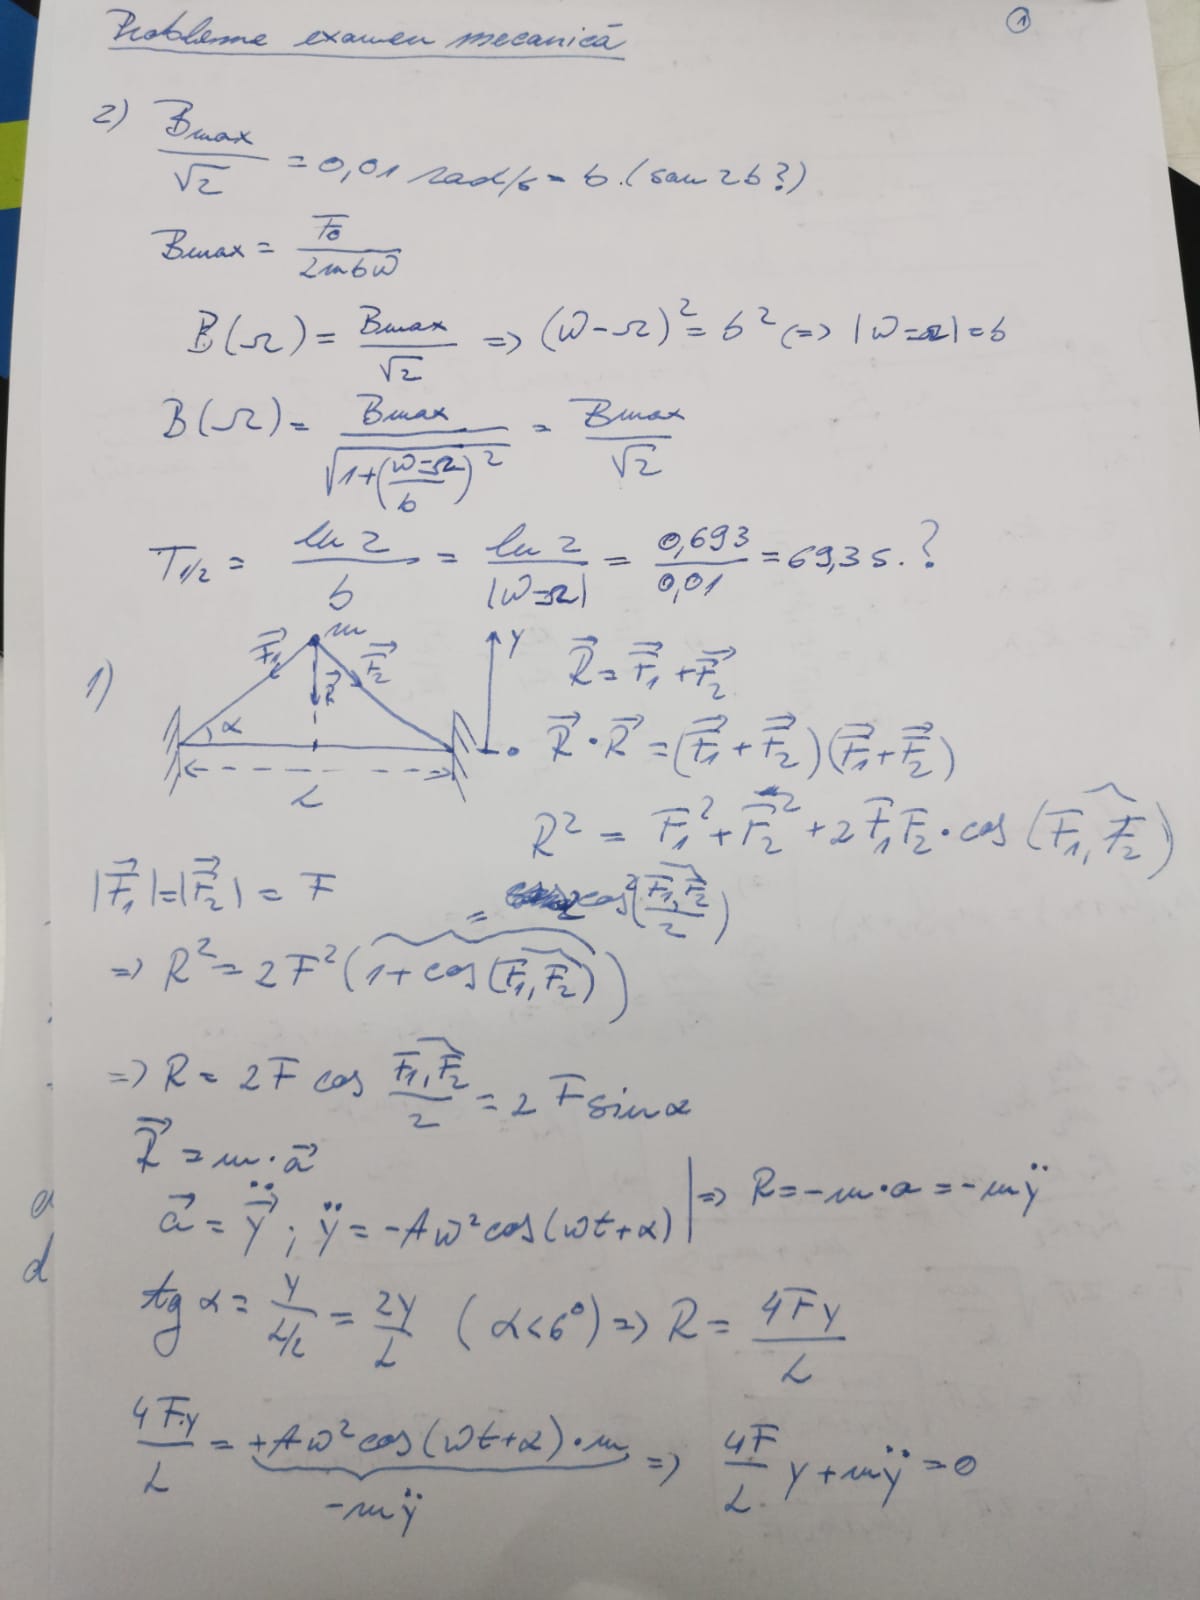 Probleme examen mecanică
1
2) Bmax/√2 = 0,01 rad/s = b. (sau 2b?)
Bmax = F0/2mbω
B(Ω) = Bmax/√2 => (ω-Ω)² = b² (=> |ω-Ω| = b
B(Ω) = Bmax/√(1+((ω-Ω)/b)²) = Bmax/√2
T1/2 = ln 2/b = ln 2/|ω-Ω| = 0,693/0,01 = 69,3 s. ?
1)
m
F⃗1
F⃗2
R⃗
α
L
y
R⃗ = F⃗1 + F⃗2
R⃗ · R⃗ = (F⃗1 + F⃗2)(F⃗1 + F⃗2)
R² = F1² + F2² + 2F1F2 · cos(F1, F2)
|F⃗1| = |F⃗2| = F
= 2cos²(F1, F2/2)
=> R² = 2F²(1 + cos(F1, F2))
=> R = 2F cos F1, F2/2 = 2F sin α
R⃗ = m · a⃗
a⃗ = ÿ⃗ ; ÿ = -Aω² cos(ωt + α) | => R = -m · a = -mÿ
tg α = y/L/2 = 2y/L (α < 6°) => R = 4Fy/L
4F·y/L = +Aω² cos(ωt + α) · m => 4F/L. y + mÿ = 0
-mÿ
d